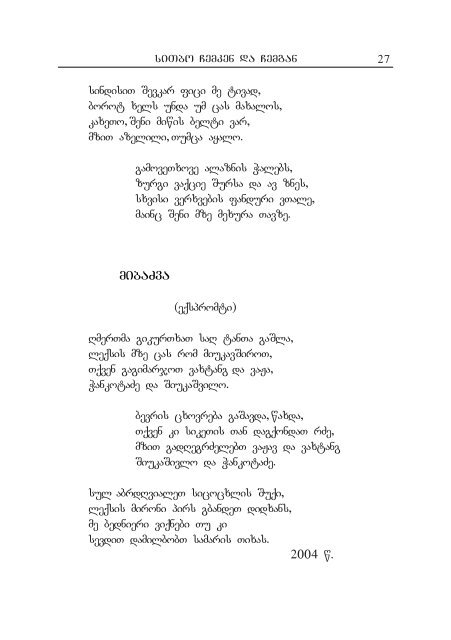 სითბო ჩემკენ და ჩემგან 27
სინდისით შევკარ ფიცი მე ტივად,
ბოროტ ხელს უნდა უმ ცას მახალოს,
კახეთო, შენი მიწის ბელტი ვარ,
მზით აზელილი, თუმცა აყალო.
გამოვეთხოვე ალაზნის ჭალებს,
ზურგი ვაქციე შურსა და ავ ზნეს,
სხვისი ვერხვების ფანდური ვთალე,
მაინც შენი მზე მეხურა თავზე.
მიბაძვა
(ექსპრომტი)
ღმერთმა გიკურთხათ საღ ტანთა გაშლა,
ლექსის მზე ცას რომ მიუკავშიროთ,
თქვენ გაგიმარჯოთ ვახტანგ და ვაჟა,
ჭანკოტაძე და შიუკაშვილო.
ბევრის ცხოვრება გაშავდა, წახდა,
თქვენ კი სიკეთის თან დაგქონდათ რძე,
მზით გადღეგრძელებთ ვაჟავ და ვახტანგ
შიუკაშივლო და ჭანკოტაძე.
სულ აბრდღვიალეთ სიცოცხლის შუქი,
ლექსის მირონი პირს გბანდეთ დიდხანს,
მე ბედნიერი ვიქნები თუ კი
სევდით დამილბობთ სამარის თიხას.
2004 წ.